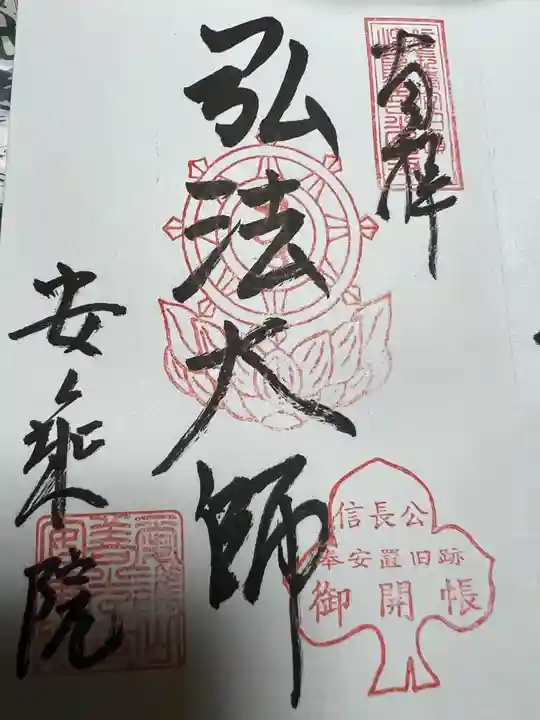 奉拝
弘法大師
安乗院
信長公
奉安置旧跡
御開帳